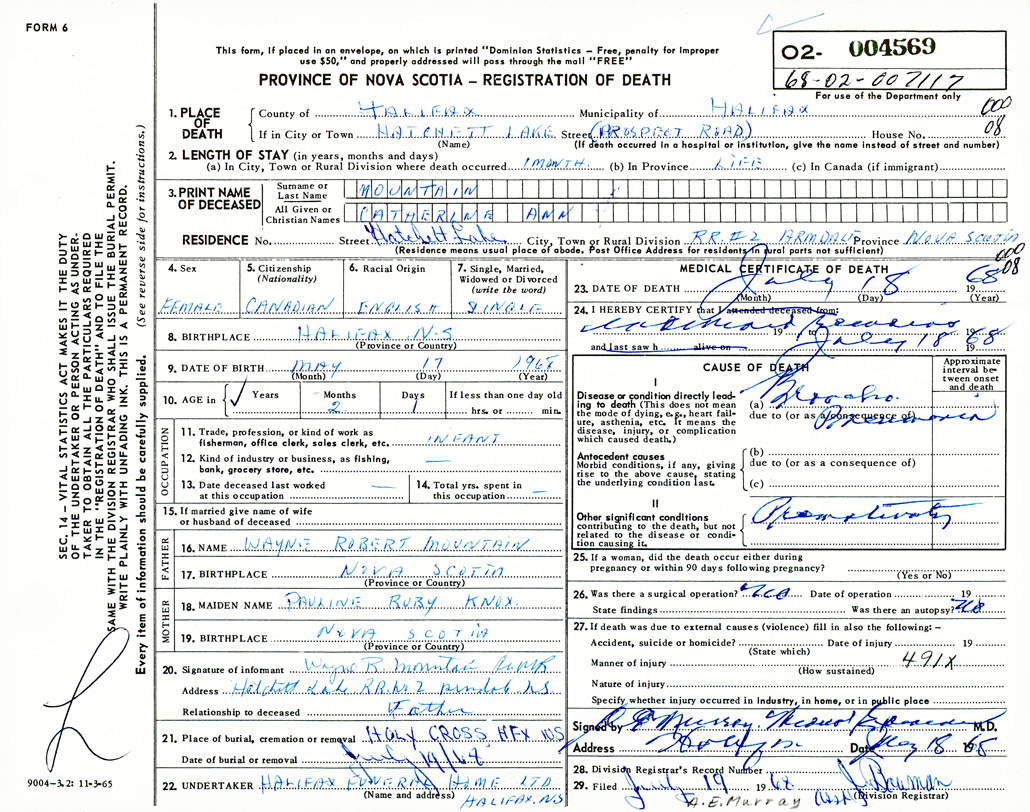 FORM 6
This form, if placed in an envelope, on which is printed "Dominion Statistics – Free, penalty for improper
use $50," and properly addressed will pass through the mail "FREE"
PROVINCE OF NOVA SCOTIA – REGISTRATION OF DEATH
O2- 004569
68-02-007117
For use of the Department only
000
08
1. PLACE OF DEATH
County of HALIFAX Municipality of HALIFAX
If in City or Town HATCHETT LAKE Street (PROSPECT ROAD) House No.
(Name) (If death occurred in a hospital or institution, give the name instead of street and number)
2. LENGTH OF STAY (in years, months and days)
(a) In City, Town or Rural Division where death occurred 1 MONTH. (b) In Province LIFE (c) In Canada (if immigrant)
3. PRINT NAME OF DECEASED
Surname or Last Name MOUNTAIN
All Given or Christian Names CATHERINE ANN
RESIDENCE No. Street Hatchett Lake City, Town or Rural Division RR.#2 ARMDALE Province NOVA SCOTIA
(Residence means usual place of abode. Post Office Address for residents in rural parts not sufficient)
000
08
4. Sex FEMALE
5. Citizenship (Nationality) CANADIAN
6. Racial Origin ENGLISH
7. Single, Married, Widowed or Divorced (write the word) SINGLE
8. BIRTHPLACE HALIFAX N.S
(Province or Country)
9. DATE OF BIRTH MAY 17 1968
(Month) (Day) (Year)
10. AGE in ✓ Years Months 2 Days 1 If less than one day old hrs. or min.
OCCUPATION
11. Trade, profession, or kind of work as fisherman, office clerk, sales clerk, etc. INFANT
12. Kind of industry or business, as fishing, bank, grocery store, etc. —
13. Date deceased last worked at this occupation —
14. Total yrs. spent in this occupation —
15. If married give name of wife or husband of deceased
FATHER
16. NAME WAYNE ROBERT MOUNTAIN
17. BIRTHPLACE NOVA SCOTIA
(Province or Country)
MOTHER
18. MAIDEN NAME PAULINE RUBY KNOX.
19. BIRTHPLACE NOVA SCOTIA
(Province or Country)
20. Signature of informant Wayne R. Mountain
Address Hatchett Lake R.R. No 2 Armdale N.S
Relationship to deceased Father
21. Place of burial, cremation or removal HOLY CROSS HFX NS
Date of burial or removal July 19/68
22. UNDERTAKER HALIFAX FUNERAL HOME LTD
(Name and address) HALIFAX. NS
MEDICAL CERTIFICATE OF DEATH
23. DATE OF DEATH July 18 1968
(Month) (Day) (Year)
24. I HEREBY CERTIFY that I attended deceased from:
19
and last saw h alive on July 18 1968
CAUSE OF DEATH
Approximate interval between onset and death
I
Disease or condition directly leading to death (This does not mean the mode of dying, e.g., heart failure, asthenia, etc. It means the disease, injury, or complication which caused death.)
(a) Broncho.
due to (or as a consequence of)
Pneumonia
Antecedent causes
Morbid conditions, if any, giving rise to the above cause, stating the underlying condition last.
(b)
due to (or as a consequence of)
(c)
II
Other significant conditions contributing to the death, but not related to the disease or condition causing it.
Prematurity
25. If a woman, did the death occur either during pregnancy or within 90 days following pregnancy?
(Yes or No)
26. Was there a surgical operation? No Date of operation 19
State findings Was there an autopsy? No
27. If death was due to external causes (violence) fill in also the following: –
Accident, suicide or homicide? Date of injury 19
(State which)
Manner of injury 491X
(How sustained)
Nature of injury
Specify whether injury occurred in Industry, in home, or in public place
Signed by Murray Medical Examiner M.D.
Address Date July 18 1968
28. Division Registrar's Record Number
29. Filed July 19 1968 J. Bowman
(Division Registrar)
A.E. Murray
SEC. 14 – VITAL STATISTICS ACT MAKES IT THE DUTY
OF THE UNDERTAKER OR PERSON ACTING AS UNDER-
TAKER TO OBTAIN ALL THE PARTICULARS REQUIRED
IN THE "REGISTRATION OF DEATH" AND TO FILE THE
SAME WITH THE DIVISION REGISTRAR WHO SHALL ISSUE THE BURIAL PERMIT.
WRITE PLAINLY WITH UNFADING INK. THIS IS A PERMANENT RECORD.
Every item of information should be carefully supplied. (See reverse side for instructions.)
9004-3.2: 11-3-65